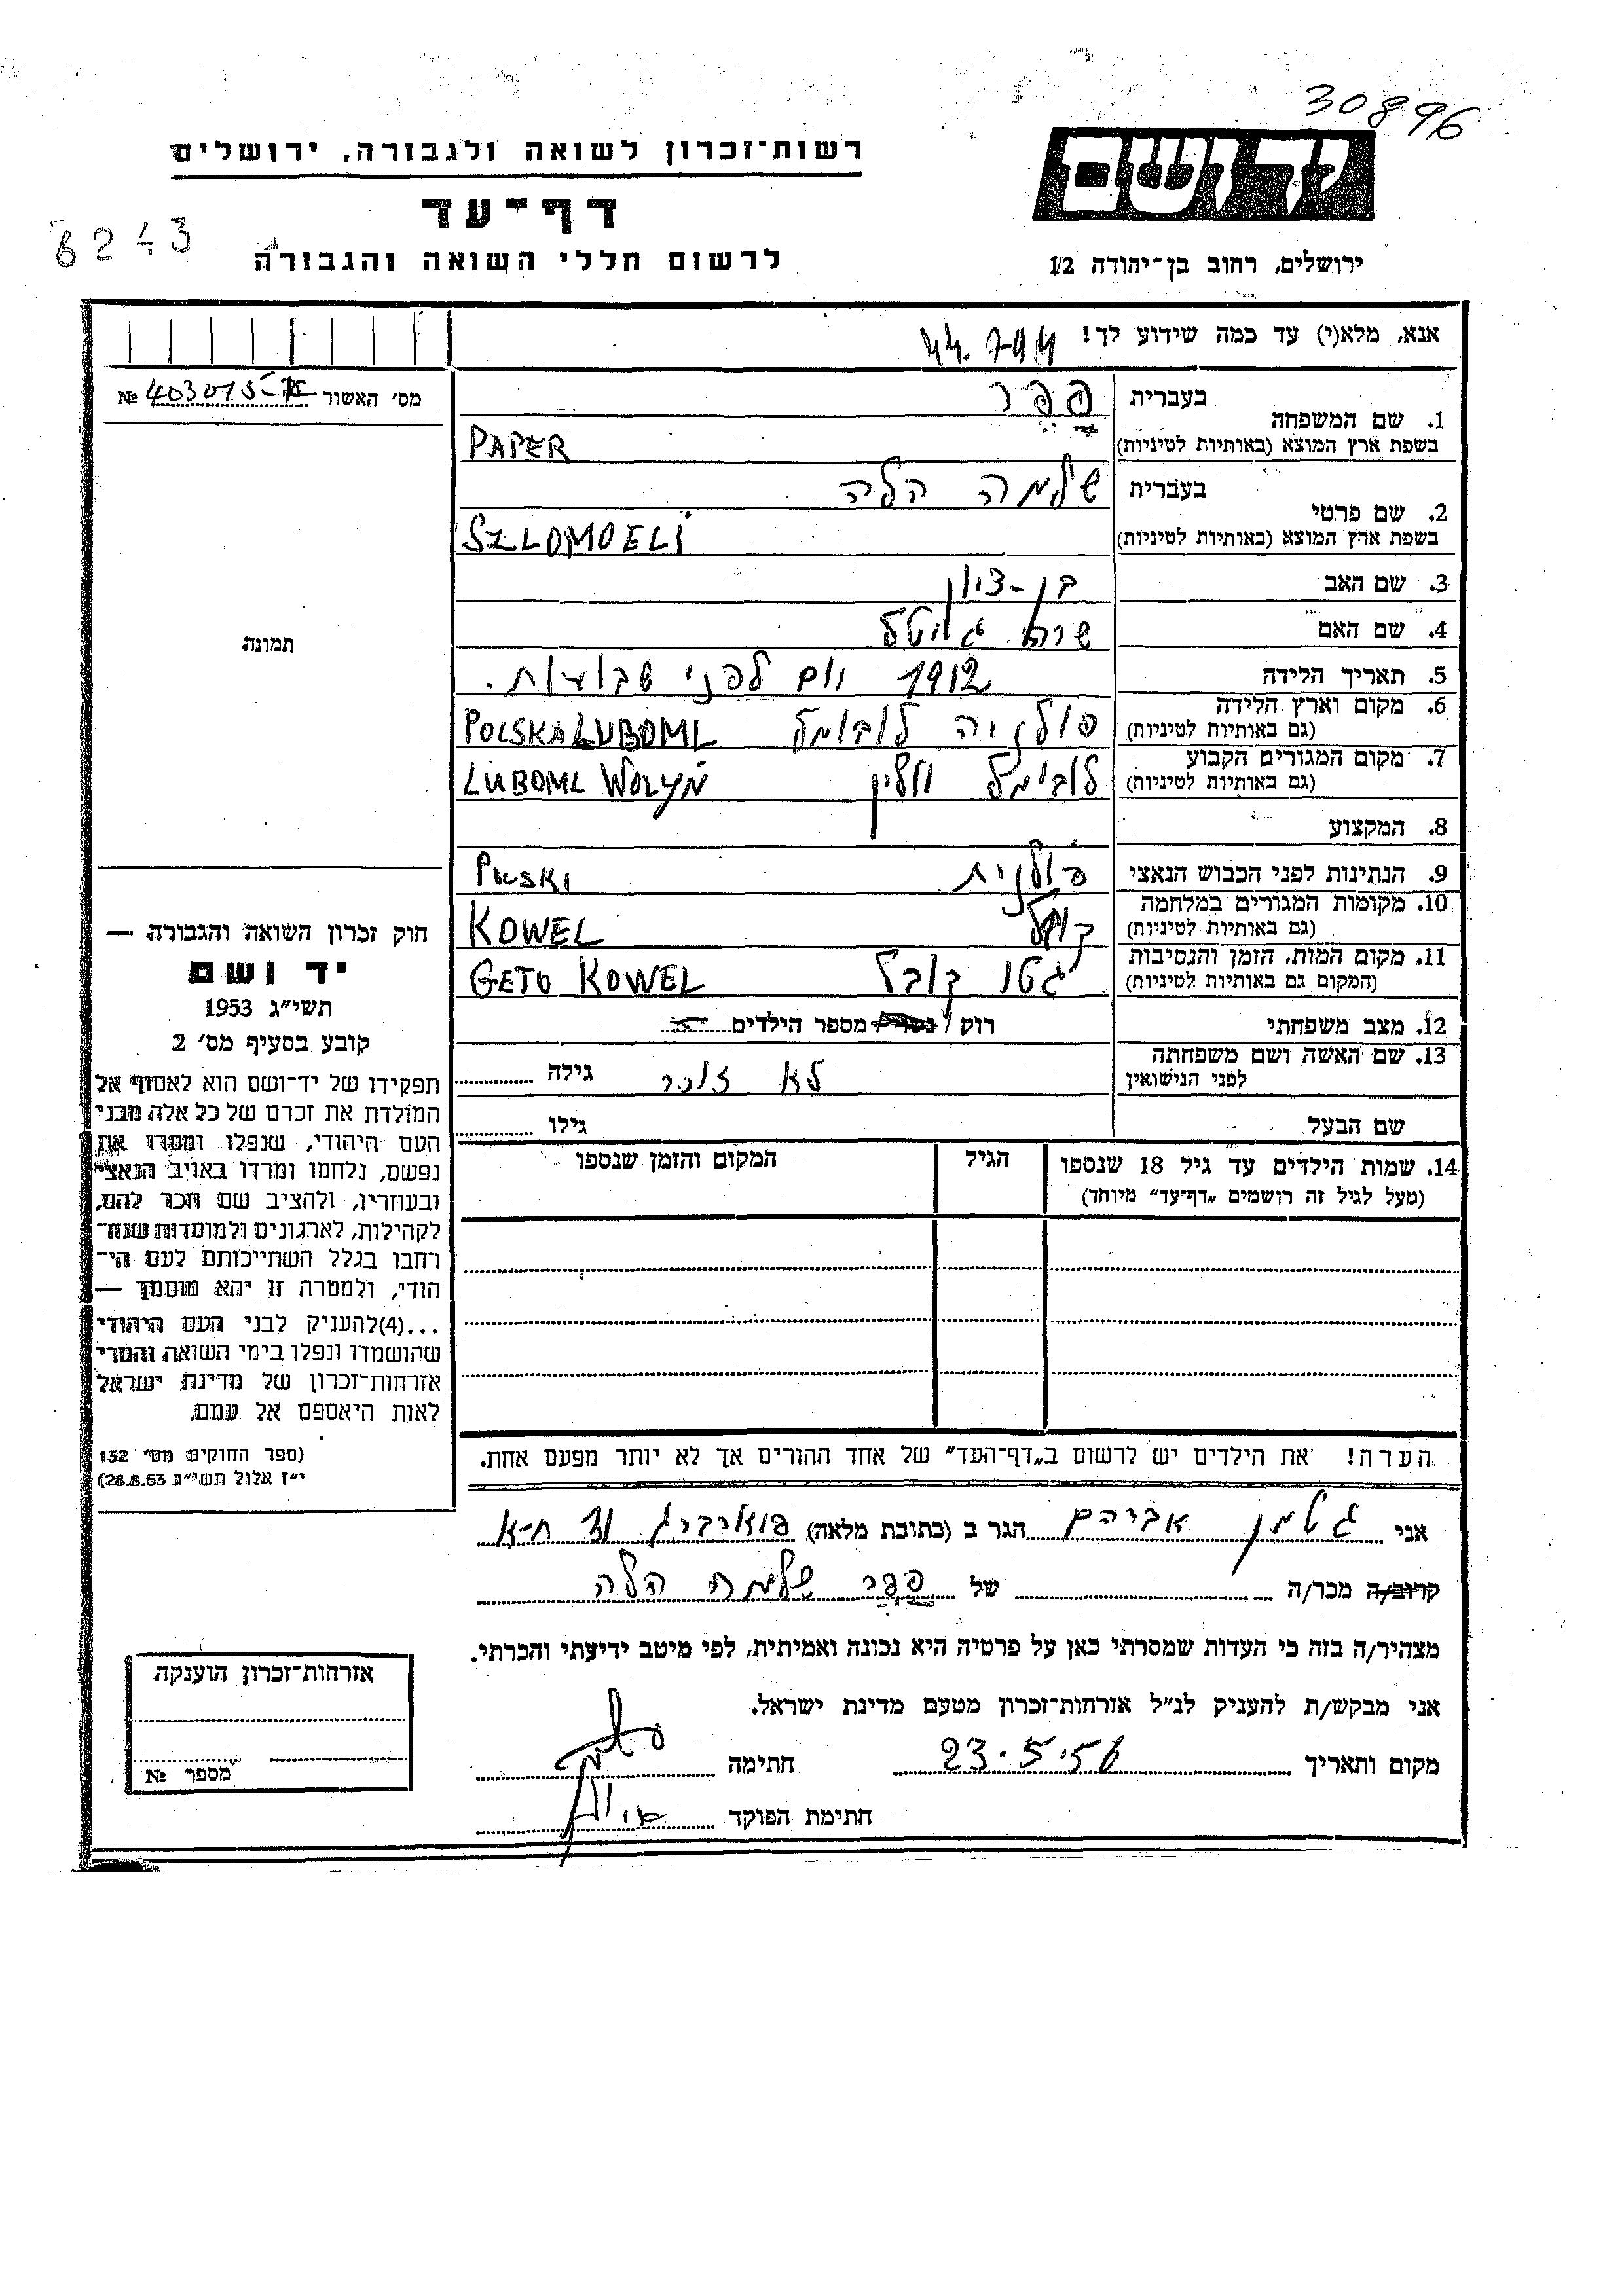 30896
רשות־זכרון לשואה ולגבורה, ירושלים
יד ושם
דף־עד
6243
לרשום חללי השואה והגבורה
ירושלים, רחוב בן־יהודה 12
אנא, מלא(י) עד כמה שידוע לך!
מס׳ האשור № 403015-א
1. שם המשפחה
בעברית פפר
בשפת ארץ המוצא (באותיות לטיניות) PAPER
2. שם פרטי
בעברית שלמה הלה
בשפת ארץ המוצא (באותיות לטיניות) SZLOMOELI
3. שם האב בן-ציון
4. שם האם שרה גיטל
תמונה
5. תאריך הלידה 1912 יום לפני שבועות.
6. מקום וארץ הלידה פולניה לובומל POLSKA LUBOML
(גם באותיות לטיניות)
7. מקום המגורים הקבוע לובימל וולין LUBOML WOLYŃ
(גם באותיות לטיניות)
8. המקצוע
9. הנתינות לפני הכבוש הנאצי פולנית POLSKI
10. מקומות המגורים במלחמה KOWEL
(גם באותיות לטיניות)
11. מקום המות, הזמן והנסיבות גטו קובל GETO KOWEL
(המקום גם באותיות לטיניות)
12. מצב משפחתי רוק / נשוי / מספר הילדים
13. שם האשה ושם משפחתה לא זוכר גילה
לפני הנישואין
שם הבעל גילו
14. שמות הילדים עד גיל 18 שנספו הגיל המקום והזמן שנספו
(מעל לגיל זה רושמים „דף־עד״ מיוחד)
חוק זכרון השואה והגבורה —
יד ושם
תשי״ג 1953
קובע בסעיף מס׳ 2
תפקידו של יד־ושם הוא לאסוף אל
המולדת את זכרם של כל אלה מבני
העם היהודי, שנפלו ומסרו את
נפשם, נלחמו ומרדו באויב הנאצי
ובעוזריו, ולהציב שם וזכר להם,
לקהילות, לארגונים ולמוסדות שנח־
רחבו בגלל השתייכותם לעם הי־
הודי, ולמטרה זו יהא מוסמך —
...(4)להעניק לבני העם היהודי
שהושמדו ונפלו בימי השואה והמרי
אזרחות־זכרון של מדינת ישראל
לאות היאספם אל עמם.
(ספר החוקים מס׳ 132
י״ז אלול תשי״ג 28.8.53)
הערה! את הילדים יש לרשום ב„דף־העד״ של אחד ההורים אך לא יותר מפעם אחת.
אני גטמן אברהם הגר ב (כתובת מלאה)
קרוב/ה מכר/ה של פפר שלמה הלה
מצהיר/ה בזה כי העדות שמסרתי כאן על פרטיה היא נכונה ואמיתית, לפי מיטב ידיעתי והכרתי.
אני מבקש/ת להעניק לנ״ל אזרחות־זכרון מטעם מדינת ישראל.
מקום ותאריך 23.5.56 חתימה
חתימת הפוקד
אזרחות־זכרון הוענקה
מספר №